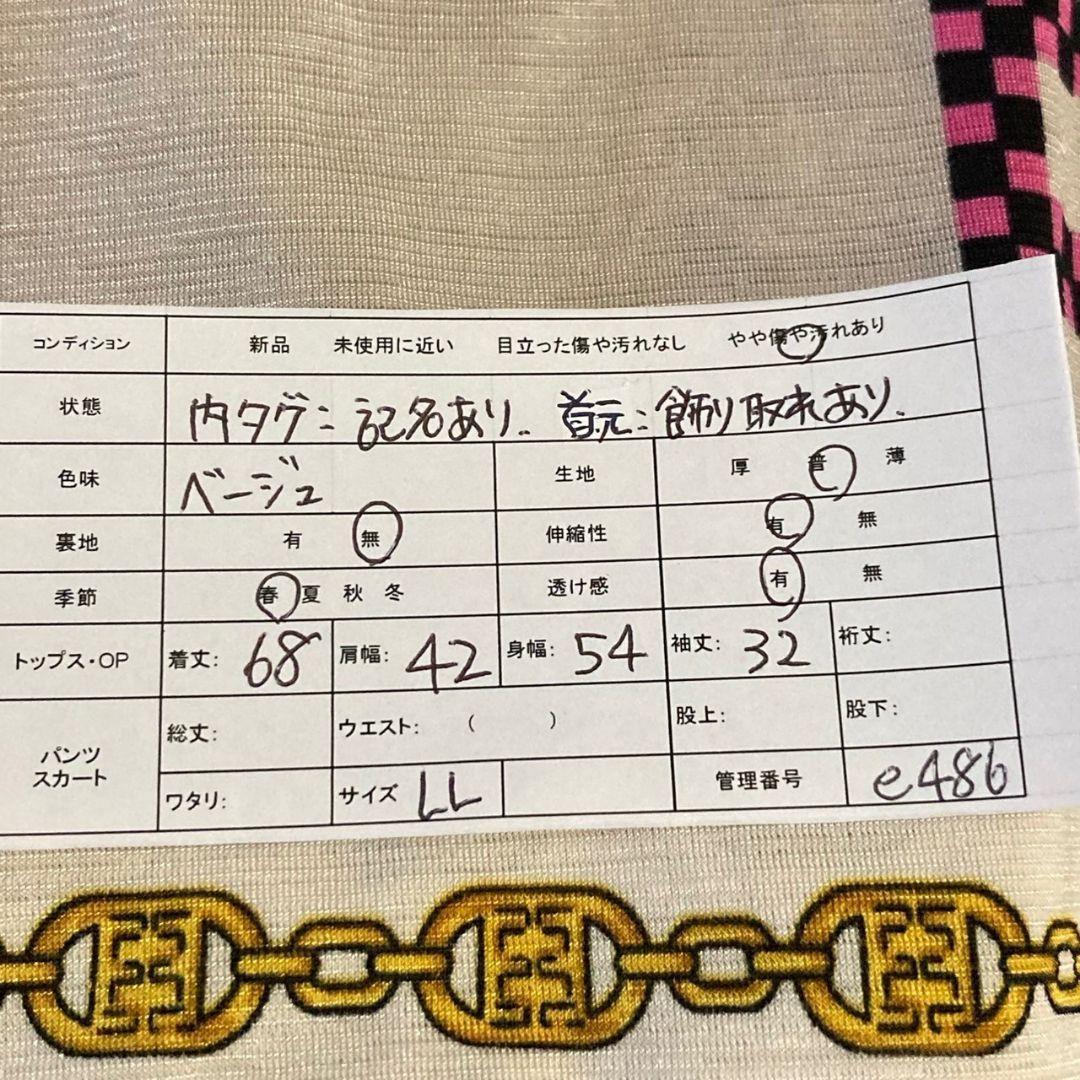 コンディション 新品 未使用に近い 目立った傷や汚れなし やや傷や汚れあり
状態 内タグ: 記名あり. 首元: 飾り取れあり.
色味 ベージュ 生地 厚 普 薄
裏地 有 無 伸縮性 有 無
季節 春 夏 秋 冬 透け感 有 無
トップス・OP 着丈: 68 肩幅: 42 身幅: 54 袖丈: 32 裄丈:
パンツ スカート 総丈: ウエスト: ( ) 股上: 股下:
ワタリ: サイズ LL 管理番号 e486